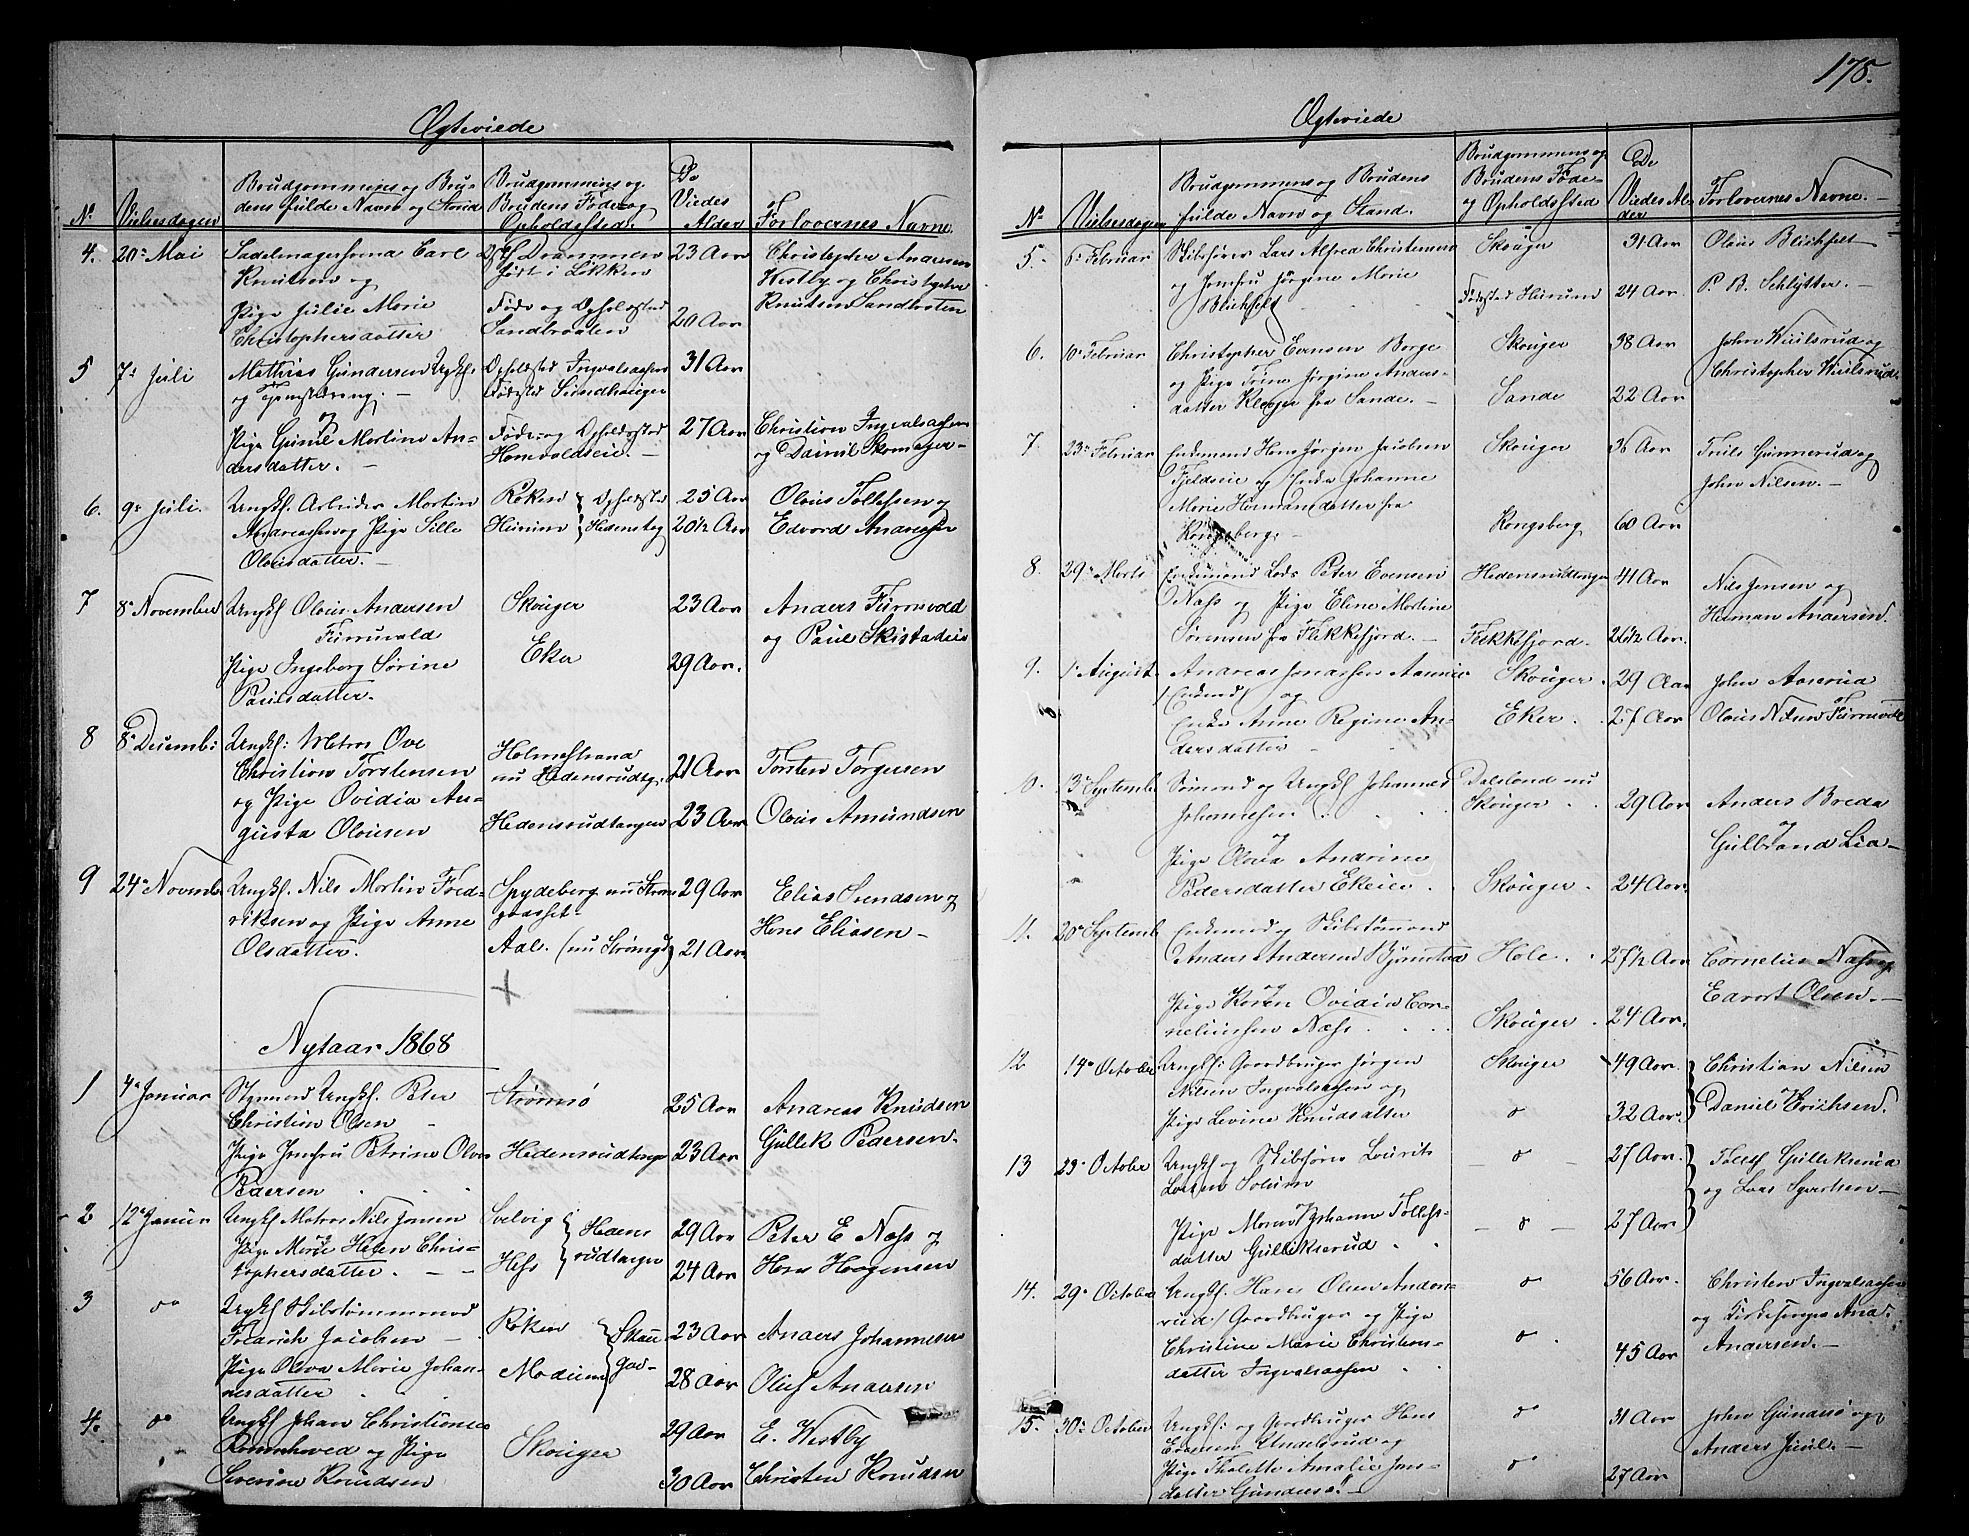 178.
Ægteviede
No
Vielsesdagen
Brudgommenes og Bru-
dens fulde Navn og Stand
Brudgommens og
Brudens Føde og
Opholdssted.
De
Viedes
Alder
Forlovernes Navne
4. 20de Mai
Sadelmagersvend Carl
Knutsen og
Pige Julie Marie
Christophersdatter
Drammen
Føde og Opholdssted
Sandbraaten
23 Aar
20 Aar
Christopher Andersen
Westby og Christopher
Knutsen Sandbraten
5 7de Juli
Mathias Gundersen Ungk.
og
Pige Gunil Martine An-
dersdatter. —
Opholdsted Ingvalsaasen
Fødested
Føde og Opholdssted
31 Aar
27 Aar
Christian Ingvalsaasen
og Daniel Skomager
6. 9de Juli.
Ungk. Arbeider Martin
Andreassen og Pige Sille
Olausdatter. —
Røken
Hurum
Opholdssted
Hedenstag
25 Aar
20 1/2 Aar
Olaus Tollefsen og
Edvard Andersen
7 8de November
Ungk. Olaus Andersen
Furruvald
Pige Ingeborg Sørine
Paulsdatter.
Skouger
Eker
23 Aar
29 Aar.
Anders Furruvald
og Paul Skistadeie
8 8de Decembr
Ungk: Matros Ove
Christian Torstensen
og Pige Ovidia Au-
gusta Olausen
Holmestrand
nu Hedensrudtg.
Hedensrudtangen
21 Aar
23 Aar
Torsten Torgersen
Olaus Amundsen
9 24de Novemb
Ungk. Nils Martin Fred-
riksen og Pige Anne
Olsdatter.
Spydeberg nu Strøms
gaasset
Aal. (nu Strømsgd)
29 Aar
21 Aar
Elias Svendsen og
Hans Eliasen —
Nytaar 1868
1 4de Januar
Styrmand Ungk. Peter
Christian Olsen
Pige Jomfru Petrine Olava
Pedersen
Strømsø
Hedensrudtange
25 Aar
23 Aar
Andreas Knudsen
Gullik Pedersen.
2 12te Januar
Ungk. Matros Nils Jonsen
og
Pige Marie Helen Chris-
tophersdatter. — —
Svelvig
Hess
Hedens
rudtangen
29 Aar
24 Aar
Peter E Næss og
Hans Haagensen
3 do
Ungk Skibstømmermand
Fredrich Jacobsen —
Pige Olava Marie Johan-
nesdatter
Røken
Modum
Skau
23 Aar
28 Aar
Anders Johannesen
Oluf Andersen
4. do
Ungk Johan Christiansen
og Pige
Severine Knudsen
Skouger
29 Aar
30 Aar
E. Westby
Christen Knudsen
Ægteviede
No
Vielsesdagen
Brudgommens og Brudens
fulde Navn og Stand.
Brudgommens og
Brudens Føde-
og Opholdssted
De
Viedes Al-
der
Forlovernes Navne. —
5. 6te Februar
Skibsfører Lars Alfred Christensen
og Jomfru Jørgine Marie
Blichfelt
Skouger
Fødested Hurum
31 Aar
24 Aar.
Olaus Blichfelt
P. B. Schlytter. —
6. 10de Februar
Christopher Evensen Berge
og Pige Trine Jørgine Anders-
datter Klever fra Sande. —
Skouger
Sande
38 Aar
22 Aar
John Wulsrud og
Christopher Wulsrud.
7. 23de Februar
Enkemand Hans Jørgen Jacobsen
Fjeldseie og Enke Johanne
Marie Hermandsdatter fra
Kongsberg. —
Skouger
Kongsberg
36 Aar
60 Aar
Truls Gunnerud og
John Nilsen. —
8. 29de Marts
Enkemand Lods Peter Evensen
Næss og Pige Eline Martine
Sørensen fra Flekkefjord. —
Hedensrudtangen
Flekkefjord.
41 Aar
Nils Jensen og
Herman Andersen.
9. 1ste August.
Andreas Jonassen Aamrud
(Enkemd) og
Enke Anne Regine An-
dersdatter
Skouger.
Eker.
29 Aar
27 Aar
John Aaserud
Olaus Nilsen Furruvald
10. 13de Septemb
Sømand og Ungk Johannes
Johannesen
og
Pige Olava Andrine
Pedersdatter Ekeie
Dalsland nu
Skouger
Skouger.
29 Aar
24 Aar.
Anders Breda
og
Gulbrand Lia —
11. 20de Septemb
Enkemand og Skibstømmermand
Anders Andersen Bjunstad
og
Pige Karen Ovidia Cor-
neliussen Næss
Hole.
Skouger.
27 1/2 Aar
24 Aar.
Cornelius Næss og
Edvart Olsen. —
12 14de October
Ungk: Gaardbruger Jørgen
Nilsen Ingvalsaasen og
Pige Levine Knudsdatter
Skouger
do
49 Aar.
32 Aar.
Christian Nilsen
Daniel Erichsen.
13 23de October
Ungk og Skibsfører Laurits
Larsen Solum
og
Pige Maren Johanne Tollefs-
datter Gulliksrud
do
do
27 Aar.
27 Aar.
Tollef Gulliksrud
og Lars Syvertsen —
14. 29de October
Ungk. Hans Olsen Anden-
rud. / Gaardbruger og Pige
Christine Marie Christians-
datter Ingvalsaasen
do
do
56 Aar.
45 Aar
Christen Ingvalsaasen
og Kirkesanger And.
Andersen. —
15. 30te October
Ungk: og Gaardbruger Hans
Evensen Undelsrud og
Pige Tholette Amalie Jens-
datter Gundersø. —
do
do
31 Aar
27 Aar
John Gundersø og
Anders Juul. —